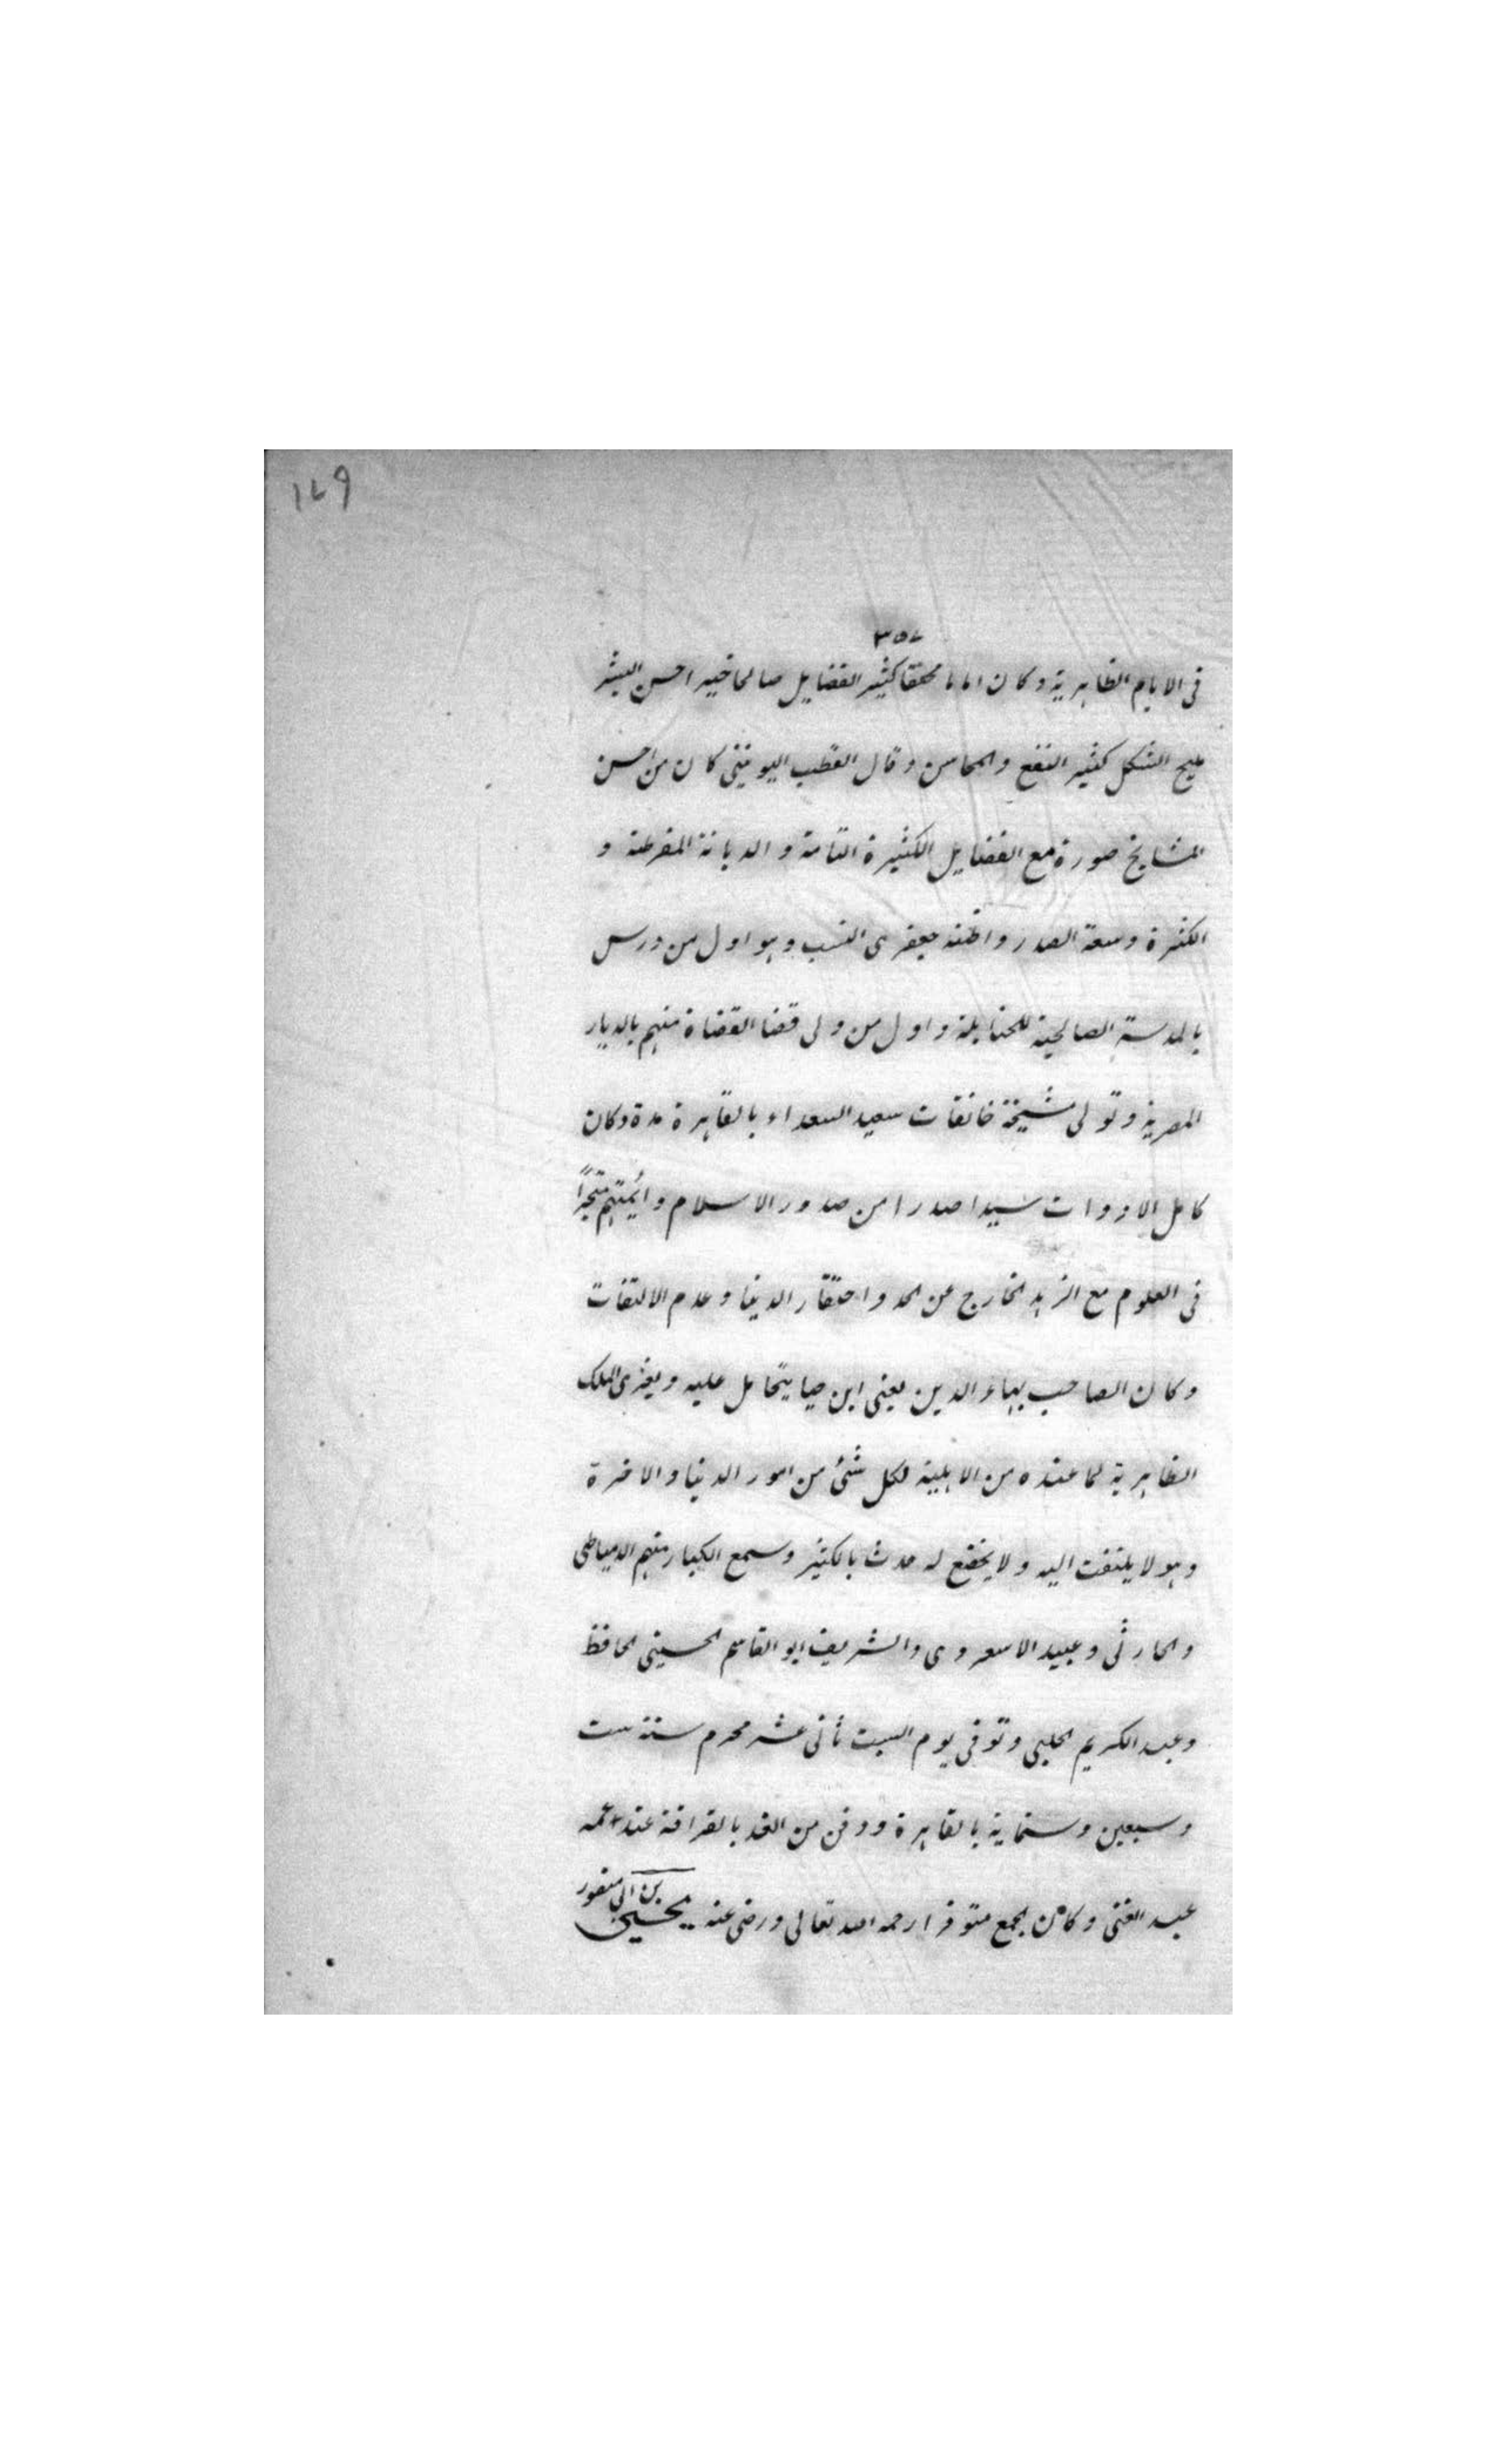 ١٧٩
٣٥٧
فى الايام الظاهرية وكان اماما محققا كثير الفضايل صالحا خيرا حسن البشر
مليح الشكل كثير النفع والمحاسن وقال القطب اليونينى كان من احسن
المشايخ صورة مع الفضايل الكثيرة التامة والديانة المفرطة و
الكثرة وسعة الصدر واظنه جعفرى النسب وهو اول من درس
بالمدرسة الصالحية للحنابلة واول من ولى قضا القضاة منهم بالديار
المصرية وتولى مشيخة خانقات سعيد السعداء بالقاهرة مدة وكان
كامل الادوات سيدا صدرا من صدور الاسلام وائمتهم متبحرًا
فى العلوم مع الزهد الخارج عن الحد واحتقار الدنيا وعدم الالتفات
وكان الصاحب بهاء الدين يعنى ابن حيا يتحامل عليه ويغرى الملك
الظاهرية لما عنده من الاهلية لكل شئ من امور الدنيا والاخرة
وهو لا يلتفت اليه ولا يخضع له حدث بالكثير وسمع الكبار منهم الدمياطى
والحارثى وعبيد الاسعردى والشريف ابو القاسم الحسينى الحافظ
وعبد الكريم الحلبى وتوفى يوم السبت ثانى عشر محرم سنة ست
وسبعين وستماية بالقاهرة ودفن من الغد بالقرافة عند عمه
عبد الغنى وكان الجمع متوفرا رحمه الله تعالى ورضى عنه يحيى بن ابى منصور